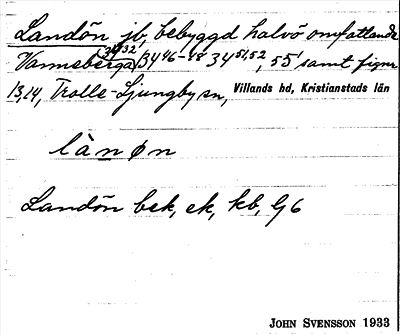 Landön jb, bebyggd halvö omfattande
Vanneberga 34³² 34⁴⁶⁻⁴⁸ 34⁵¹,⁵², 55¹ samt figur
13,14, Trolle-Ljungby sn, Villands hd, Kristianstads län
lànøn
Landön bek, ek, kb, G6
JOHN SVENSSON 1933